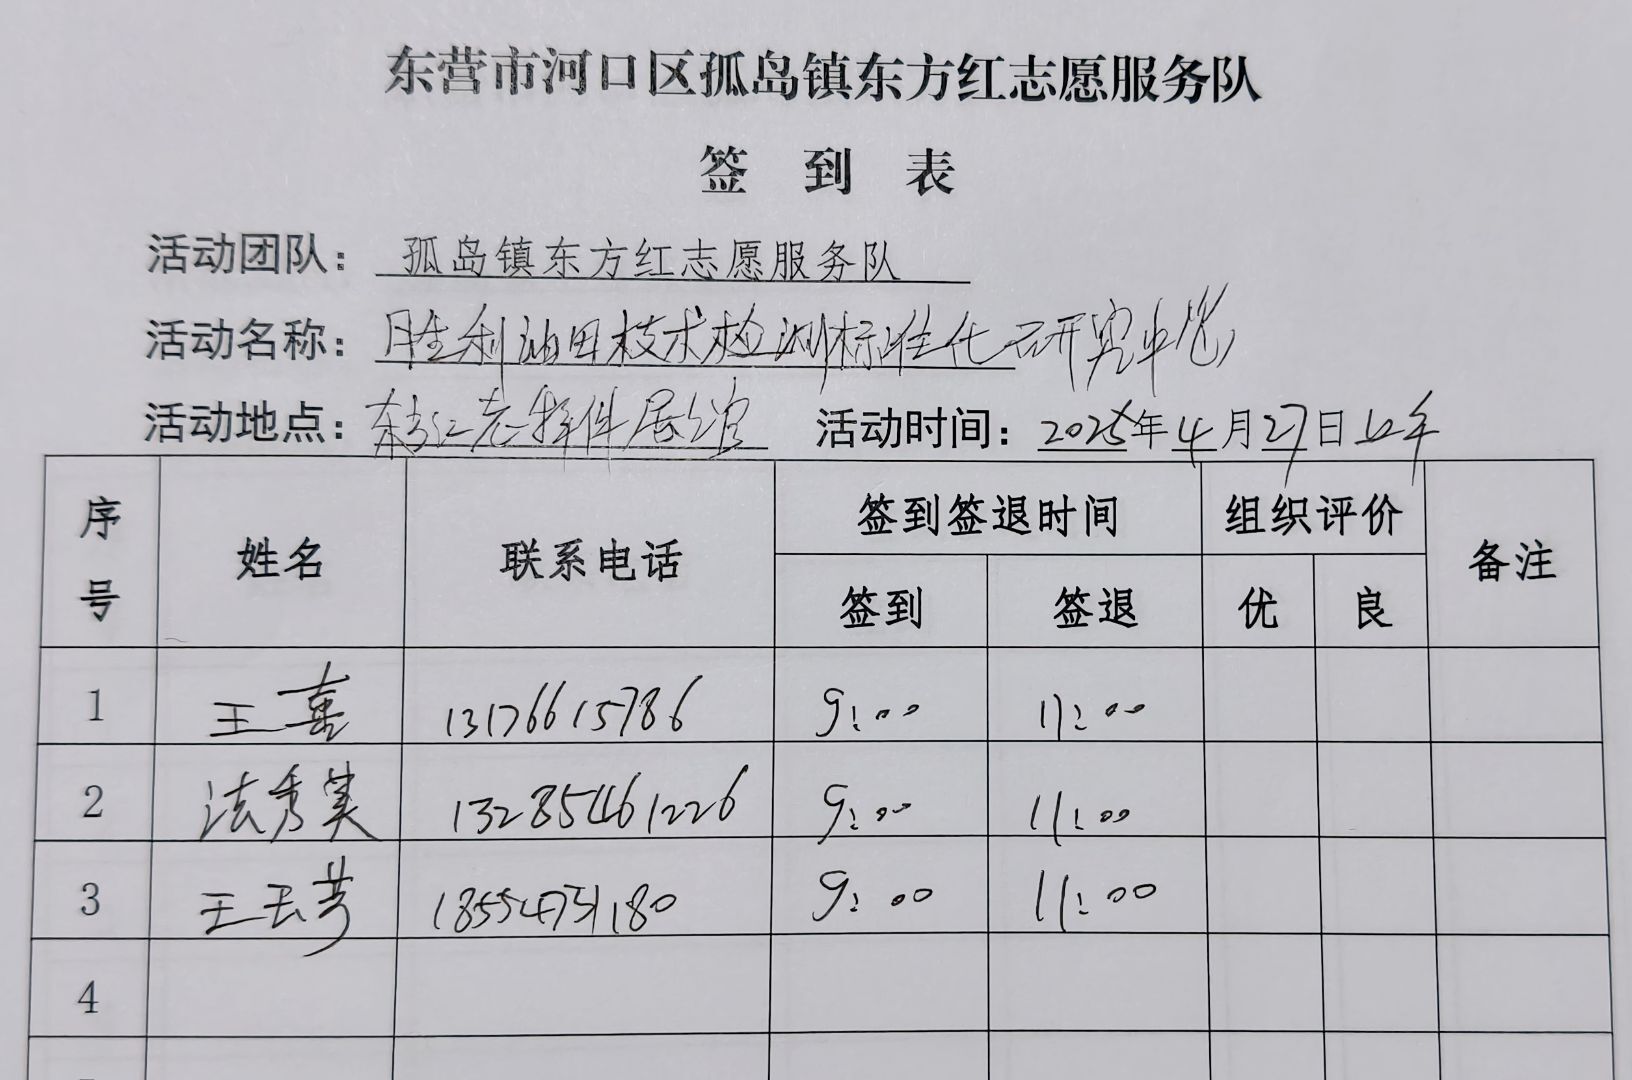 东营市河口区孤岛镇东方红志愿服务队
签 到 表
活动团队： 孤岛镇东方红志愿服务队
活动名称： 胜利油田技术检测标准化研究中心
活动地点： 展馆 活动时间：2025年4月27日上午
序号 姓名 联系电话 签到签退时间 组织评价 备注
签到 签退 优 良
1 王喜 13176615786 9:00 11:00
2 法秀美 13285461226 9:00 11:00
3 王玉芳 18554731180 9:00 11:00
4